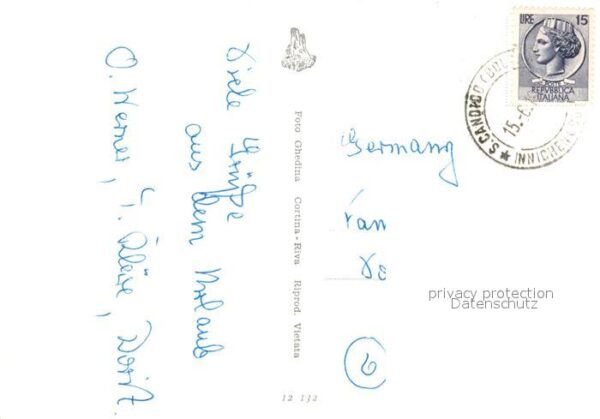 Viele Grüße
aus dem Urlaub
O. Werner, T.
Dorit.
Foto Ghedina Cortina-Riva Riprod. Vietata
12 132
LIRE 15
REPVBBLICA
ITALIANA
S. CANDIDO
INNICHEN
15.-6.
Germany
Fam
privacy protection
Datenschutz
6